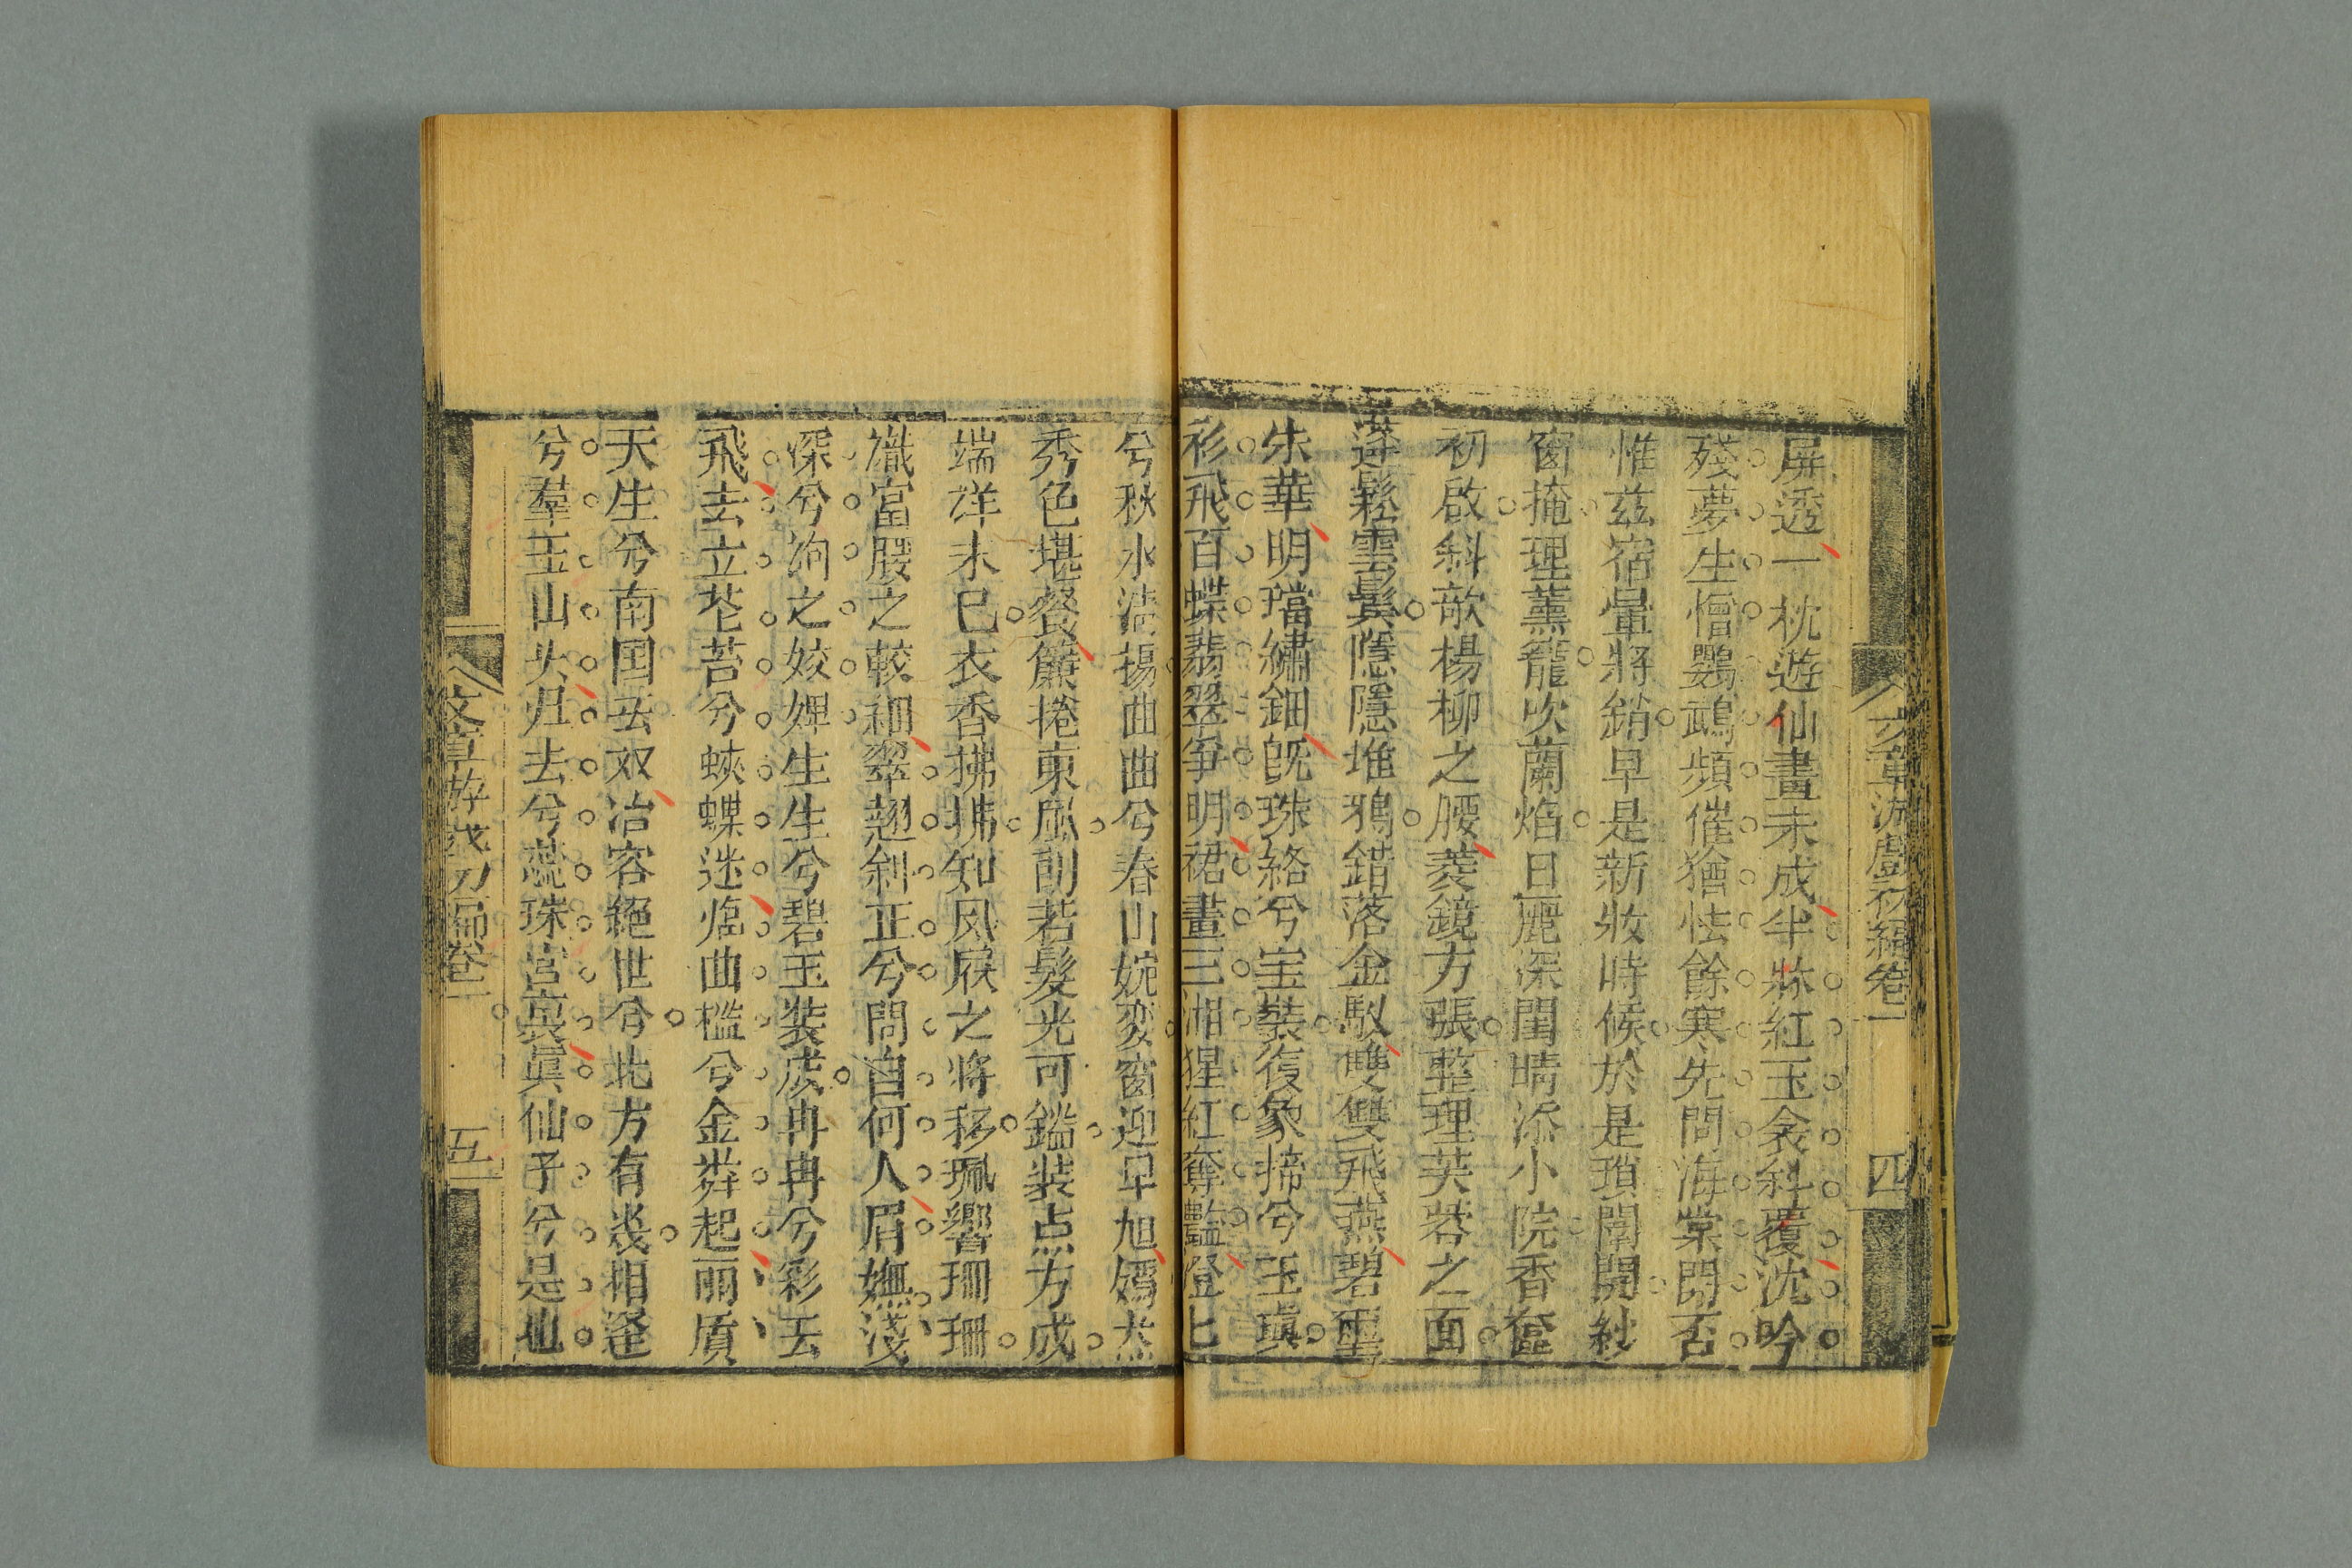 文章游戲初編卷一 四
屏透一枕遊仙畫未成半牀紅玉衾斜覆沈吟
殘夢生憎鸚鵡頻催獪怯餘寒先問海棠開否
惟兹宿暈將銷早是新妝時候於是瑣闈開紗
窗掩理薰籠吹蘭焰日麗深閨晴添小院香奩
初啟斜欹楊柳之腰菱鏡方張整理芙蓉之面
蓬鬆雲鬓隱隱堆鴉錯落金釵雙雙飛燕碧
朱華明璫繡鈿旣珠絡兮宝裝復象揥兮玉瑱
衫飛百蝶翡翠争明裙畫三湘猩紅奪豔
兮秋水清揚曲曲兮春山婉变窗迎早旭嫣然
秀色堪餐簾捲東風韶若髮光可鑑装点方成
端详未已衣香拂拂知风屐之將移珮響珊珊
富腰之較細翠翹斜正兮問自何人眉嫵淺
深兮洵之姣婢生生兮碧玉装成冉冉兮彩云
飛去立花苔兮蛱蝶迷临曲槛兮金粦起丽质
天生兮南国云双冶容絕世兮北方有幾相逢
兮羣玉山头归去兮蕊珠宫裏眞仙子兮是地
文章游戏初編卷一 五